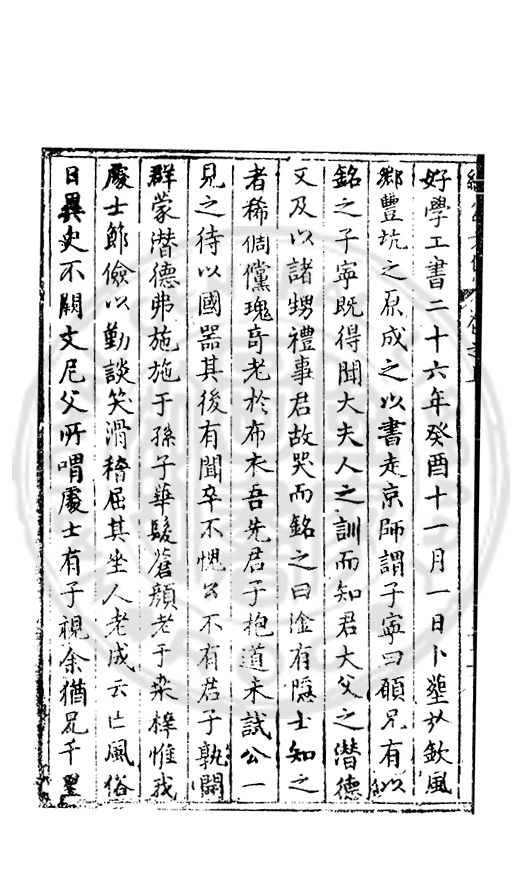 好學工書二十六年癸酉十一月一日卜塟于欽風
鄉豐坑之原成之以書走京師謂子寧曰願兄有以
銘之子寧既得聞大夫人之訓而知君大父之潜德
又及以諸甥禮事君故哭而銘之曰淦有隱士知之
者稀倜儻瑰奇老於布衣吾先君子抱道未試公一
見之待以國器其後有聞卒不愧公不有君子孰開
群蒙潜德弗施施于孫子華髮蒼顏老于桑梓惟我
處士節儉以勤談笑滑稽屈其坐人老成云亡風俗
日異史不闕文尼父所喟處士有子視余猶昆千里